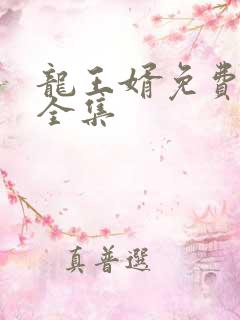 龍王婿免費
全集
真普選